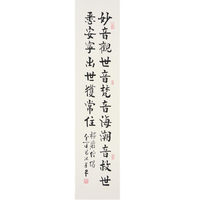 妙音觀世音梵音海潮音救世
悉安寧出世獲常住